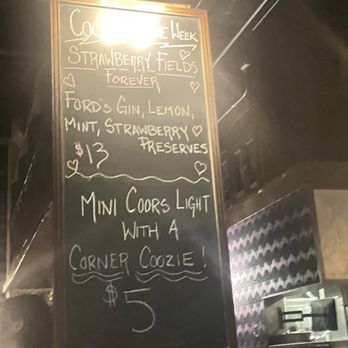 Week
Strawberry Fields
Forever
Ford's Gin, Lemon,
Mint, Strawberry
Preserves
$13
Mini Coors Light
with a
Corner Coozie!
$5